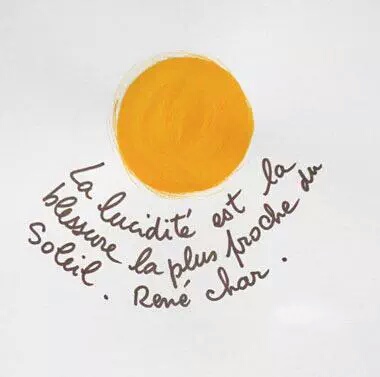 La lucidité est la
blessure la plus proche du
Soleil. René Char.